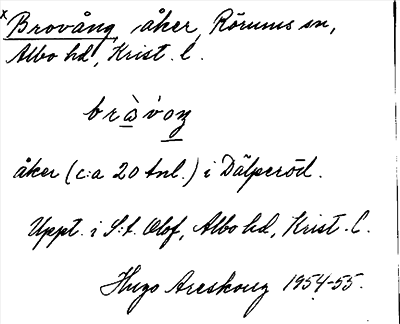 x Brovång, åker, Rörums sn,
Albo hd, Krist. l.
bràvoŋ
åker (c:a 20 tnl.) i Dälperöd.
Uppt. i S:t. Olof, Albo hd, Krist. l.
Hugo Areskoug 1954-55.